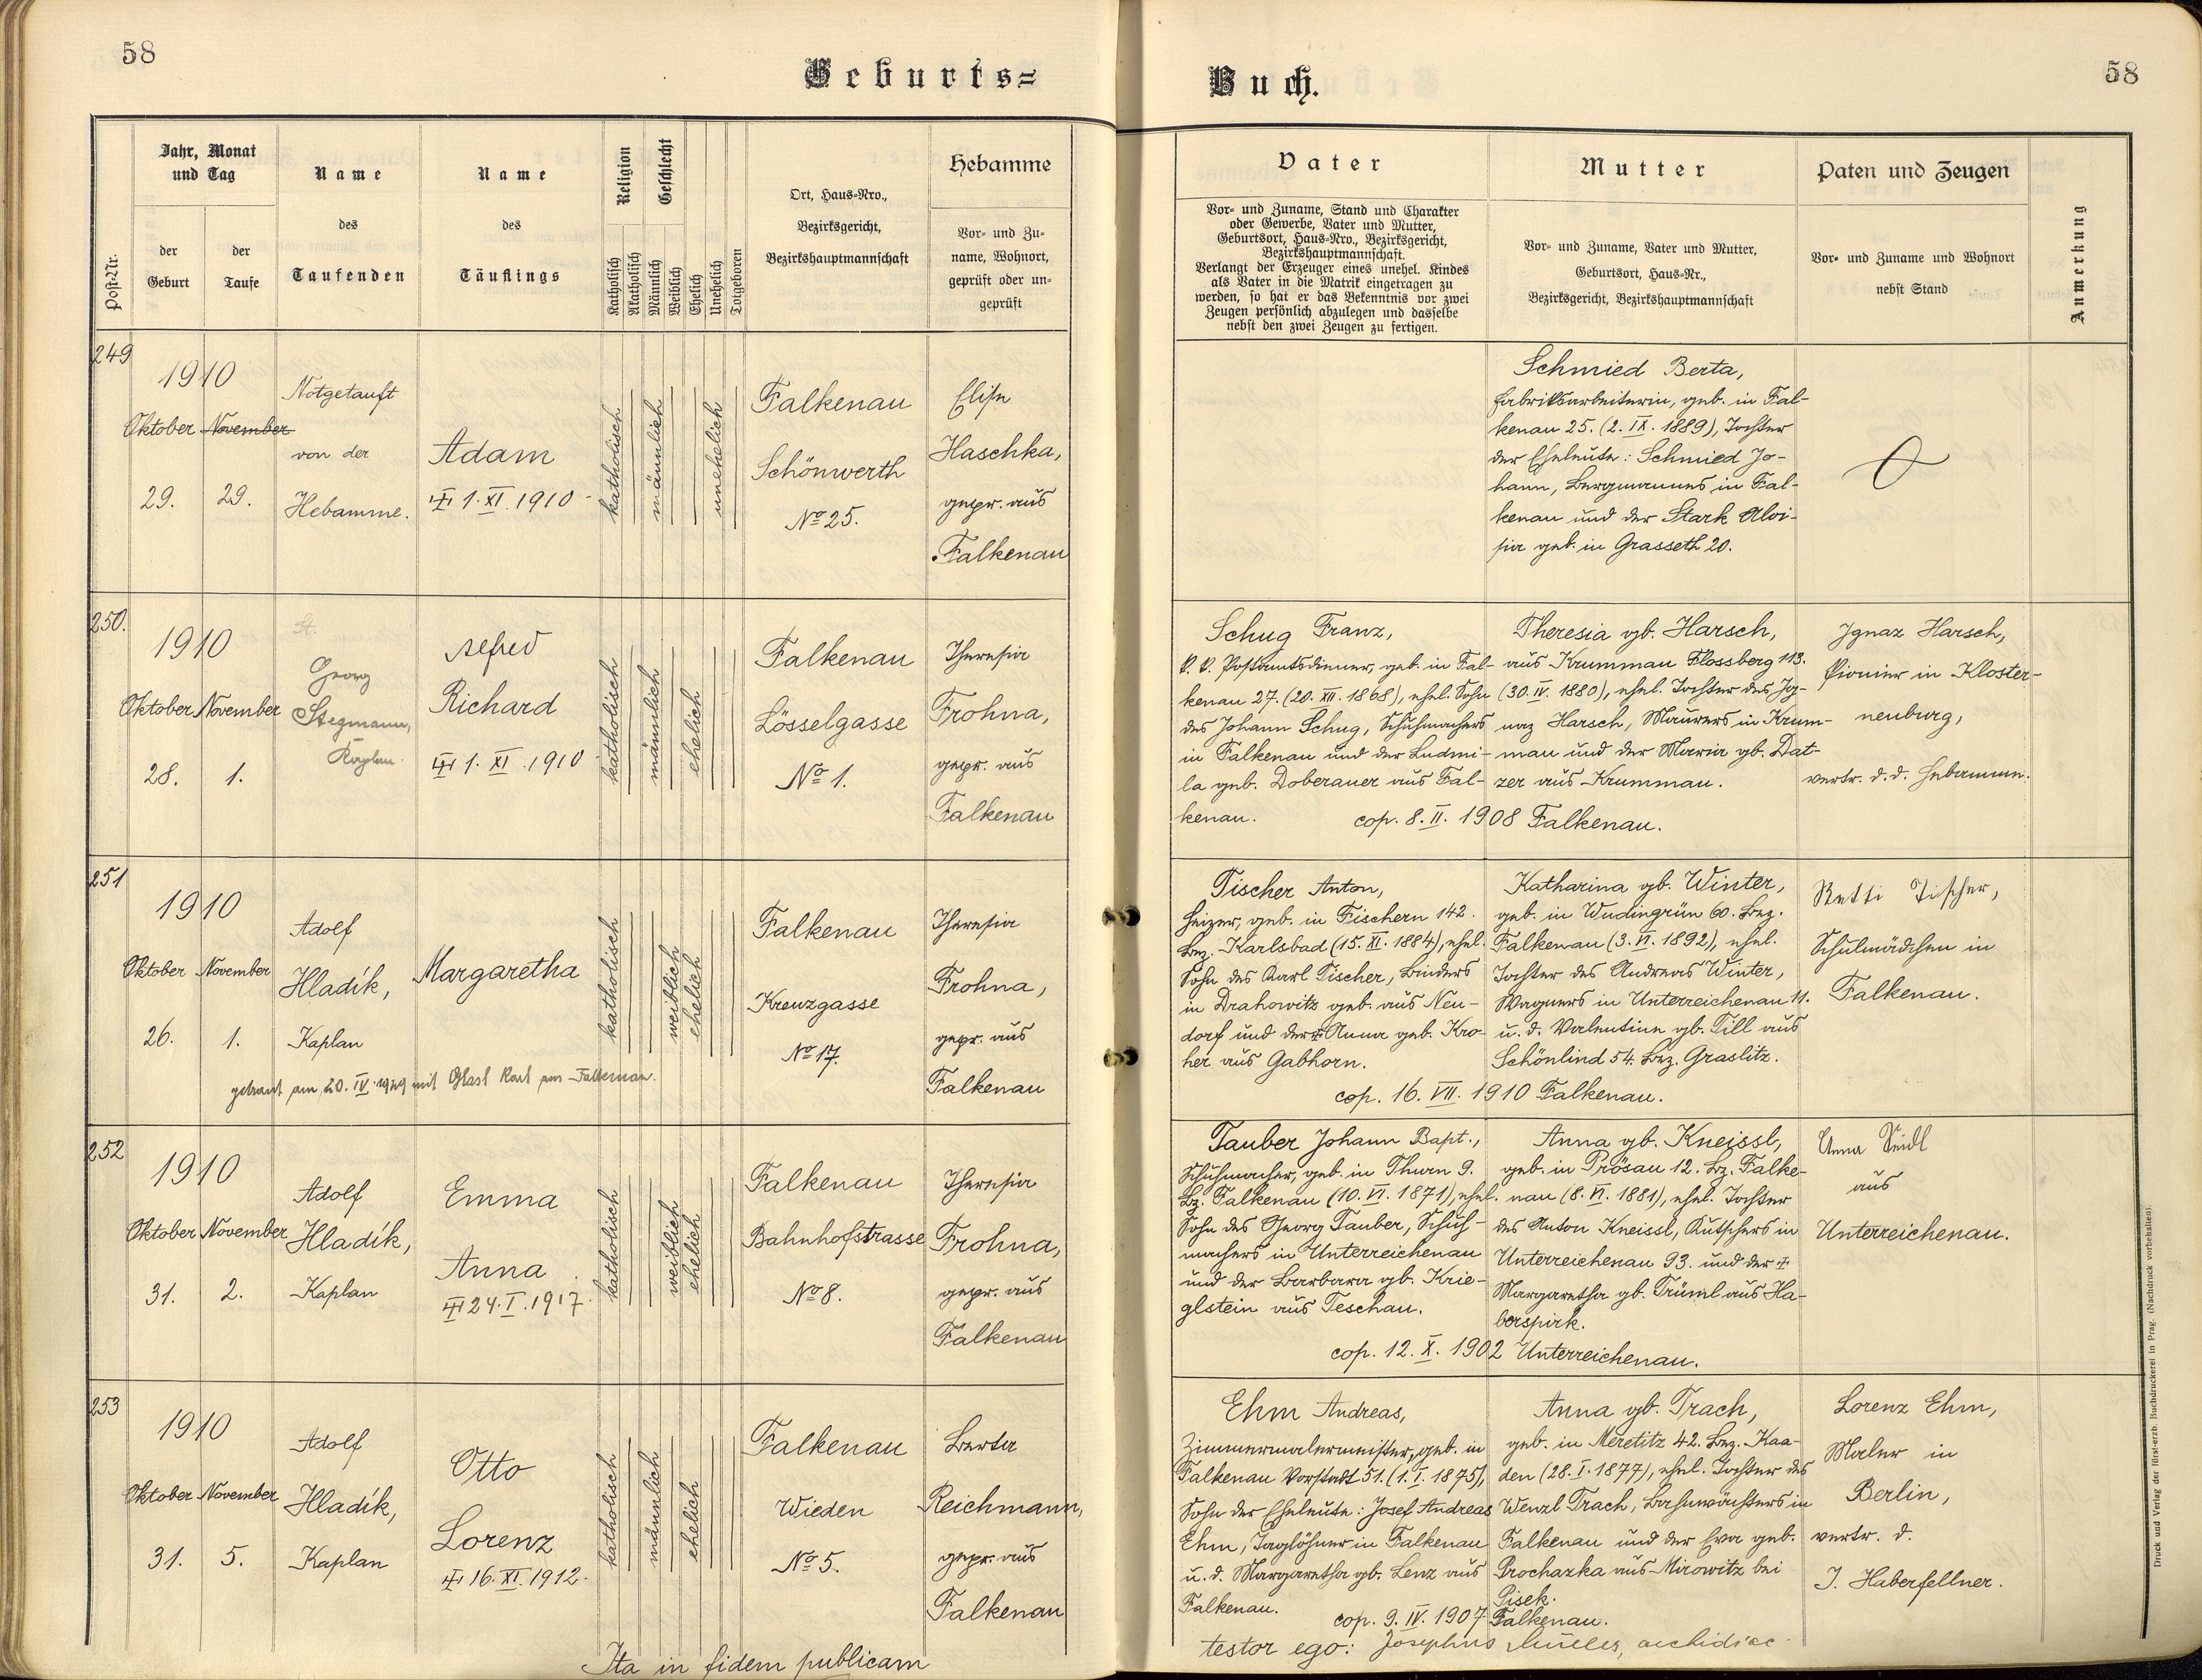 58
Geburts=
Jahr, Monat
und Tag
Name
Name
Religion
Geschlecht
Ort, Haus-Nro.,
Bezirksgericht,
Bezirkshauptmannschaft
Hebamme
Post-Nr.
der
Geburt
der
Taufe
des
Taufenden
des
Täuflings
Katholisch
Akatholisch
Männlich
Weiblich
Ehelich
Unehelich
Totgeboren
Vor- und Zu-
name, Wohnort,
geprüft oder un-
geprüft
249
1910
Oktober November
29. 29.
Notgetauft
von der
Hebamme.
Adam
1. XI. 1910
katholisch
männlich
unehelich
Falkenau
Schönwerth
No 25.
Elise
Haschka,
gepr. aus
Falkenau
250.
1910
Oktober November
28. 1.
Georg
Stegmann,
Kaplan.
Alfred
Richard
1. XI. 1910
katholisch
männlich
ehelich
Falkenau
Lösselgasse
No 1.
Theresia
Frohna,
gepr. aus
Falkenau
251
1910
Oktober November
26. 1.
Adolf
Hladík,
Kaplan
Margaretha
katholisch
weiblich
ehelich
Falkenau
Kreuzgasse
No 17.
Theresia
Frohna,
gepr. aus
Falkenau
getraut am 20. IV. 1929 mit Glasl Karl aus Falkenau.
252
1910
Oktober November
31. 2.
Adolf
Hladík,
Kaplan
Emma
Anna
24. I. 1917.
katholisch
weiblich
ehelich
Falkenau
Bahnhofstrasse
No 8.
Theresia
Frohna,
gepr. aus
Falkenau
253
1910
Oktober November
31. 5.
Adolf
Hladík,
Kaplan
Otto
Lorenz
16. XI. 1912.
katholisch
männlich
ehelich
Falkenau
Wieden
No 5.
Berta
Reichmann,
gepr. aus
Falkenau
Ita in fidem publicam
Buch.
58
Vater
Mutter
Paten und Zeugen
Anmerkung
Vor- und Zuname, Stand und Charakter
oder Gewerbe, Vater und Mutter,
Geburtsort, Haus-Nro., Bezirksgericht,
Bezirkshauptmannschaft.
Verlangt der Erzeuger eines unehel. Kindes
als Vater in die Matrik eingetragen zu
werden, so hat er das Bekenntnis vor zwei
Zeugen persönlich abzulegen und dasselbe
nebst den zwei Zeugen zu fertigen.
Vor- und Zuname, Vater und Mutter,
Geburtsort, Haus-Nr.,
Bezirksgericht, Bezirkshauptmannschaft
Vor- und Zuname und Wohnort
nebst Stand
Schmied Berta,
Fabriksarbeiterin, geb. in Fal-
kenau 25. (2. IX. 1889), Tochter
der Eheleute: Schmied Jo-
hann, Bergmannes in Fal-
kenau und der Stark Aloi-
sia geb. in Grasseth 20.
Schug Franz,
k. k. Postamtsdiener, geb. in Fal-
kenau 27. (20. XII. 1868), ehel. Sohn
des Johann Schug, Schuhmachers
in Falkenau und der Ludmi-
la geb. Doberauer aus Fal-
kenau.
Theresia gb. Harsch,
aus Krummau Flossberg 113.
(30. IV. 1880), ehel. Tochter des Jg-
naz Harsch, Maurers in Krum-
mau und der Maria gb. Dat-
zer aus Krummau.
cop. 8. II. 1908 Falkenau.
Jgnaz Harsch,
Pionier in Kloster-
neuburg,
vertr. d. d. Hebamme.
Tischer Anton,
Heizer, geb. in Fischern 142.
Bez. Karlsbad (15. XI. 1884), ehel.
Sohn des Karl Tischer, Binders
in Drahowitz geb. aus Neu-
dorf und der Anna geb. Kro-
her aus Gabhorn.
Katharina gb. Winter,
geb. in Wudingrün 60. Bez.
Falkenau (3. VI. 1892), ehel.
Tochter des Andreas Winter,
Wagners in Unterreichenau 11.
u. d. Valentine gb. Till aus
Schönlind 54. Bez. Graslitz.
cop. 16. VII. 1910 Falkenau.
Betti Tischer,
Schulmädchen in
Falkenau.
Tauber Johann Bapt.,
Schuhmacher, geb. in Thurn 9.
Bz. Falkenau (10. VI. 1871), ehel.
Sohn des Georg Tauber, Schuh-
machers in Unterreichenau
und der Barbara gb. Krie-
glstein aus Teschau.
Anna gb. Kneissl,
geb. in Prösau 12. Bz. Falke-
nau (8. VI. 1881), ehel. Tochter
des Anton Kneissl, Kutschers in
Unterreichenau 93. und der
Margaretha gb. Trüml aus Ha-
berspirk.
cop. 12. X. 1902 Unterreichenau.
Anna Seidl
aus
Unterreichenau.
Ehm Andreas,
Zimmermalermeister, geb. in
Falkenau Vorstadt 51. (1. I. 1875),
Sohn der Eheleute: Josef Andreas
Ehm, Taglöhner in Falkenau
u. d. Margaretha gb. Lenz aus
Falkenau.
Anna gb. Trach,
geb. in Meretitz 42. Bez. Kaa-
den (28. I. 1877), ehel. Tochter des
Wenzl Trach, Bahnwächters in
Falkenau und der Eva geb.
Prochazka aus Mirowitz bei
Pisek.
cop. 9. IV. 1907 Falkenau.
Lorenz Ehm,
Maler in
Berlin,
vertr. d.
J. Haberfellner.
testor ego: Josephus Müller, archidiac.
Druck und Verlag der fürst-erzb. Buchdruckerei in Prag. (Nachdruck vorbehalten).